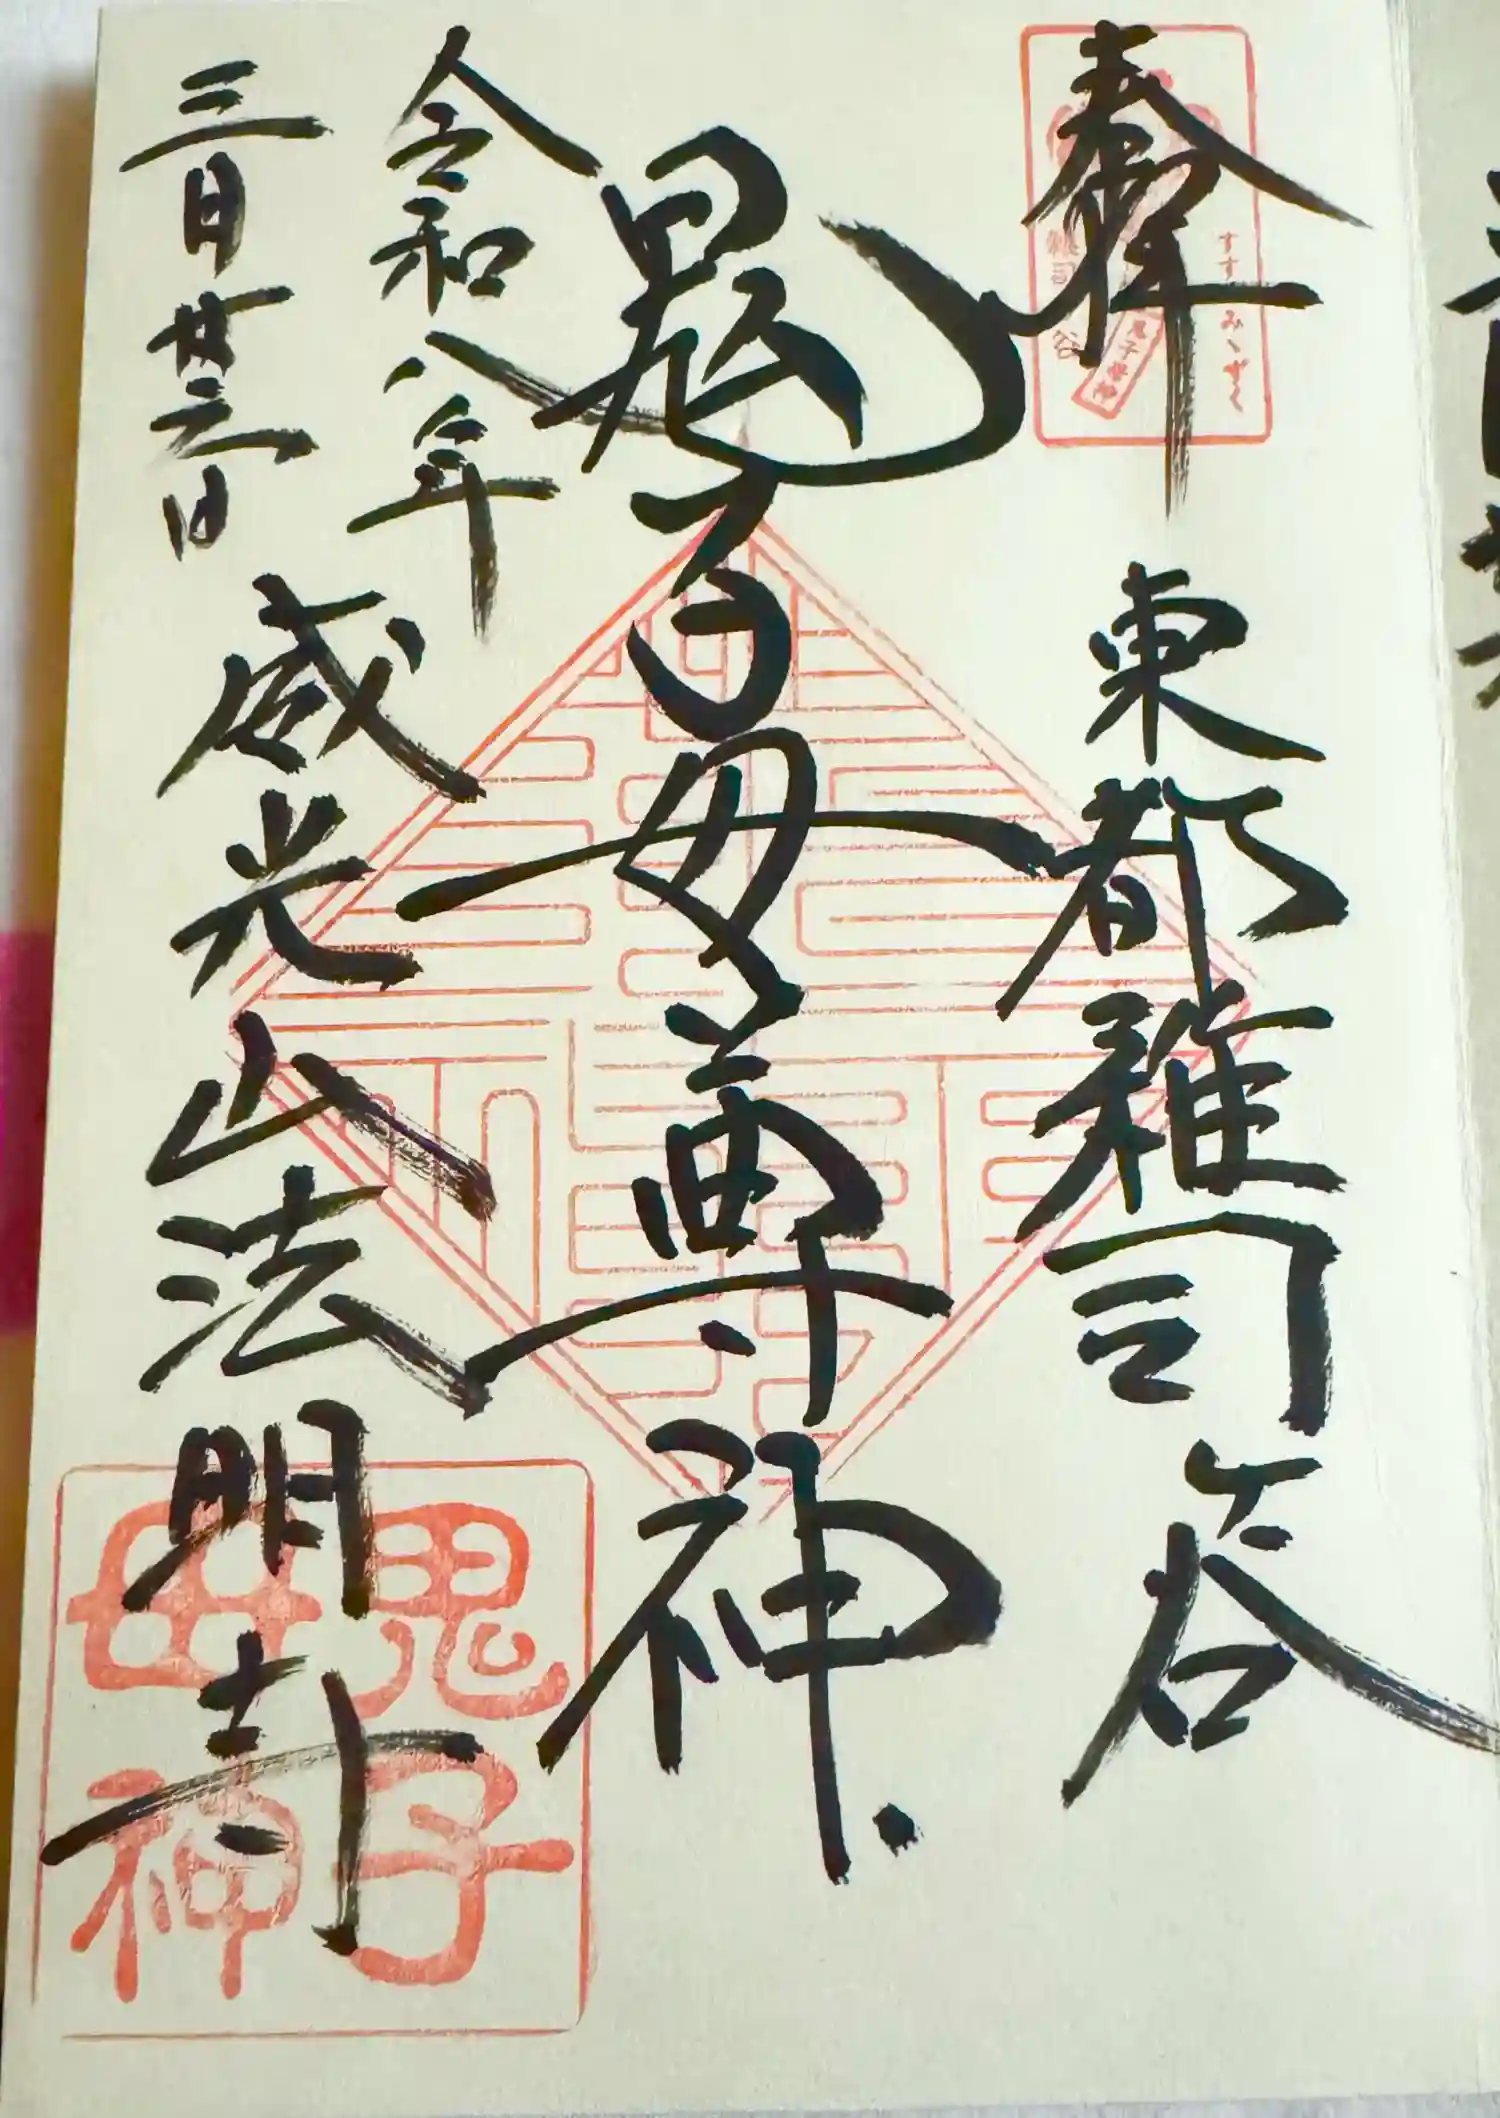 奉拝
すすきみゝずく
鬼子母神
雑司ヶ谷
東都雑司ヶ谷
鬼子母尊神
令和八年
三月廿三日
威光山法明寺
鬼子
母神